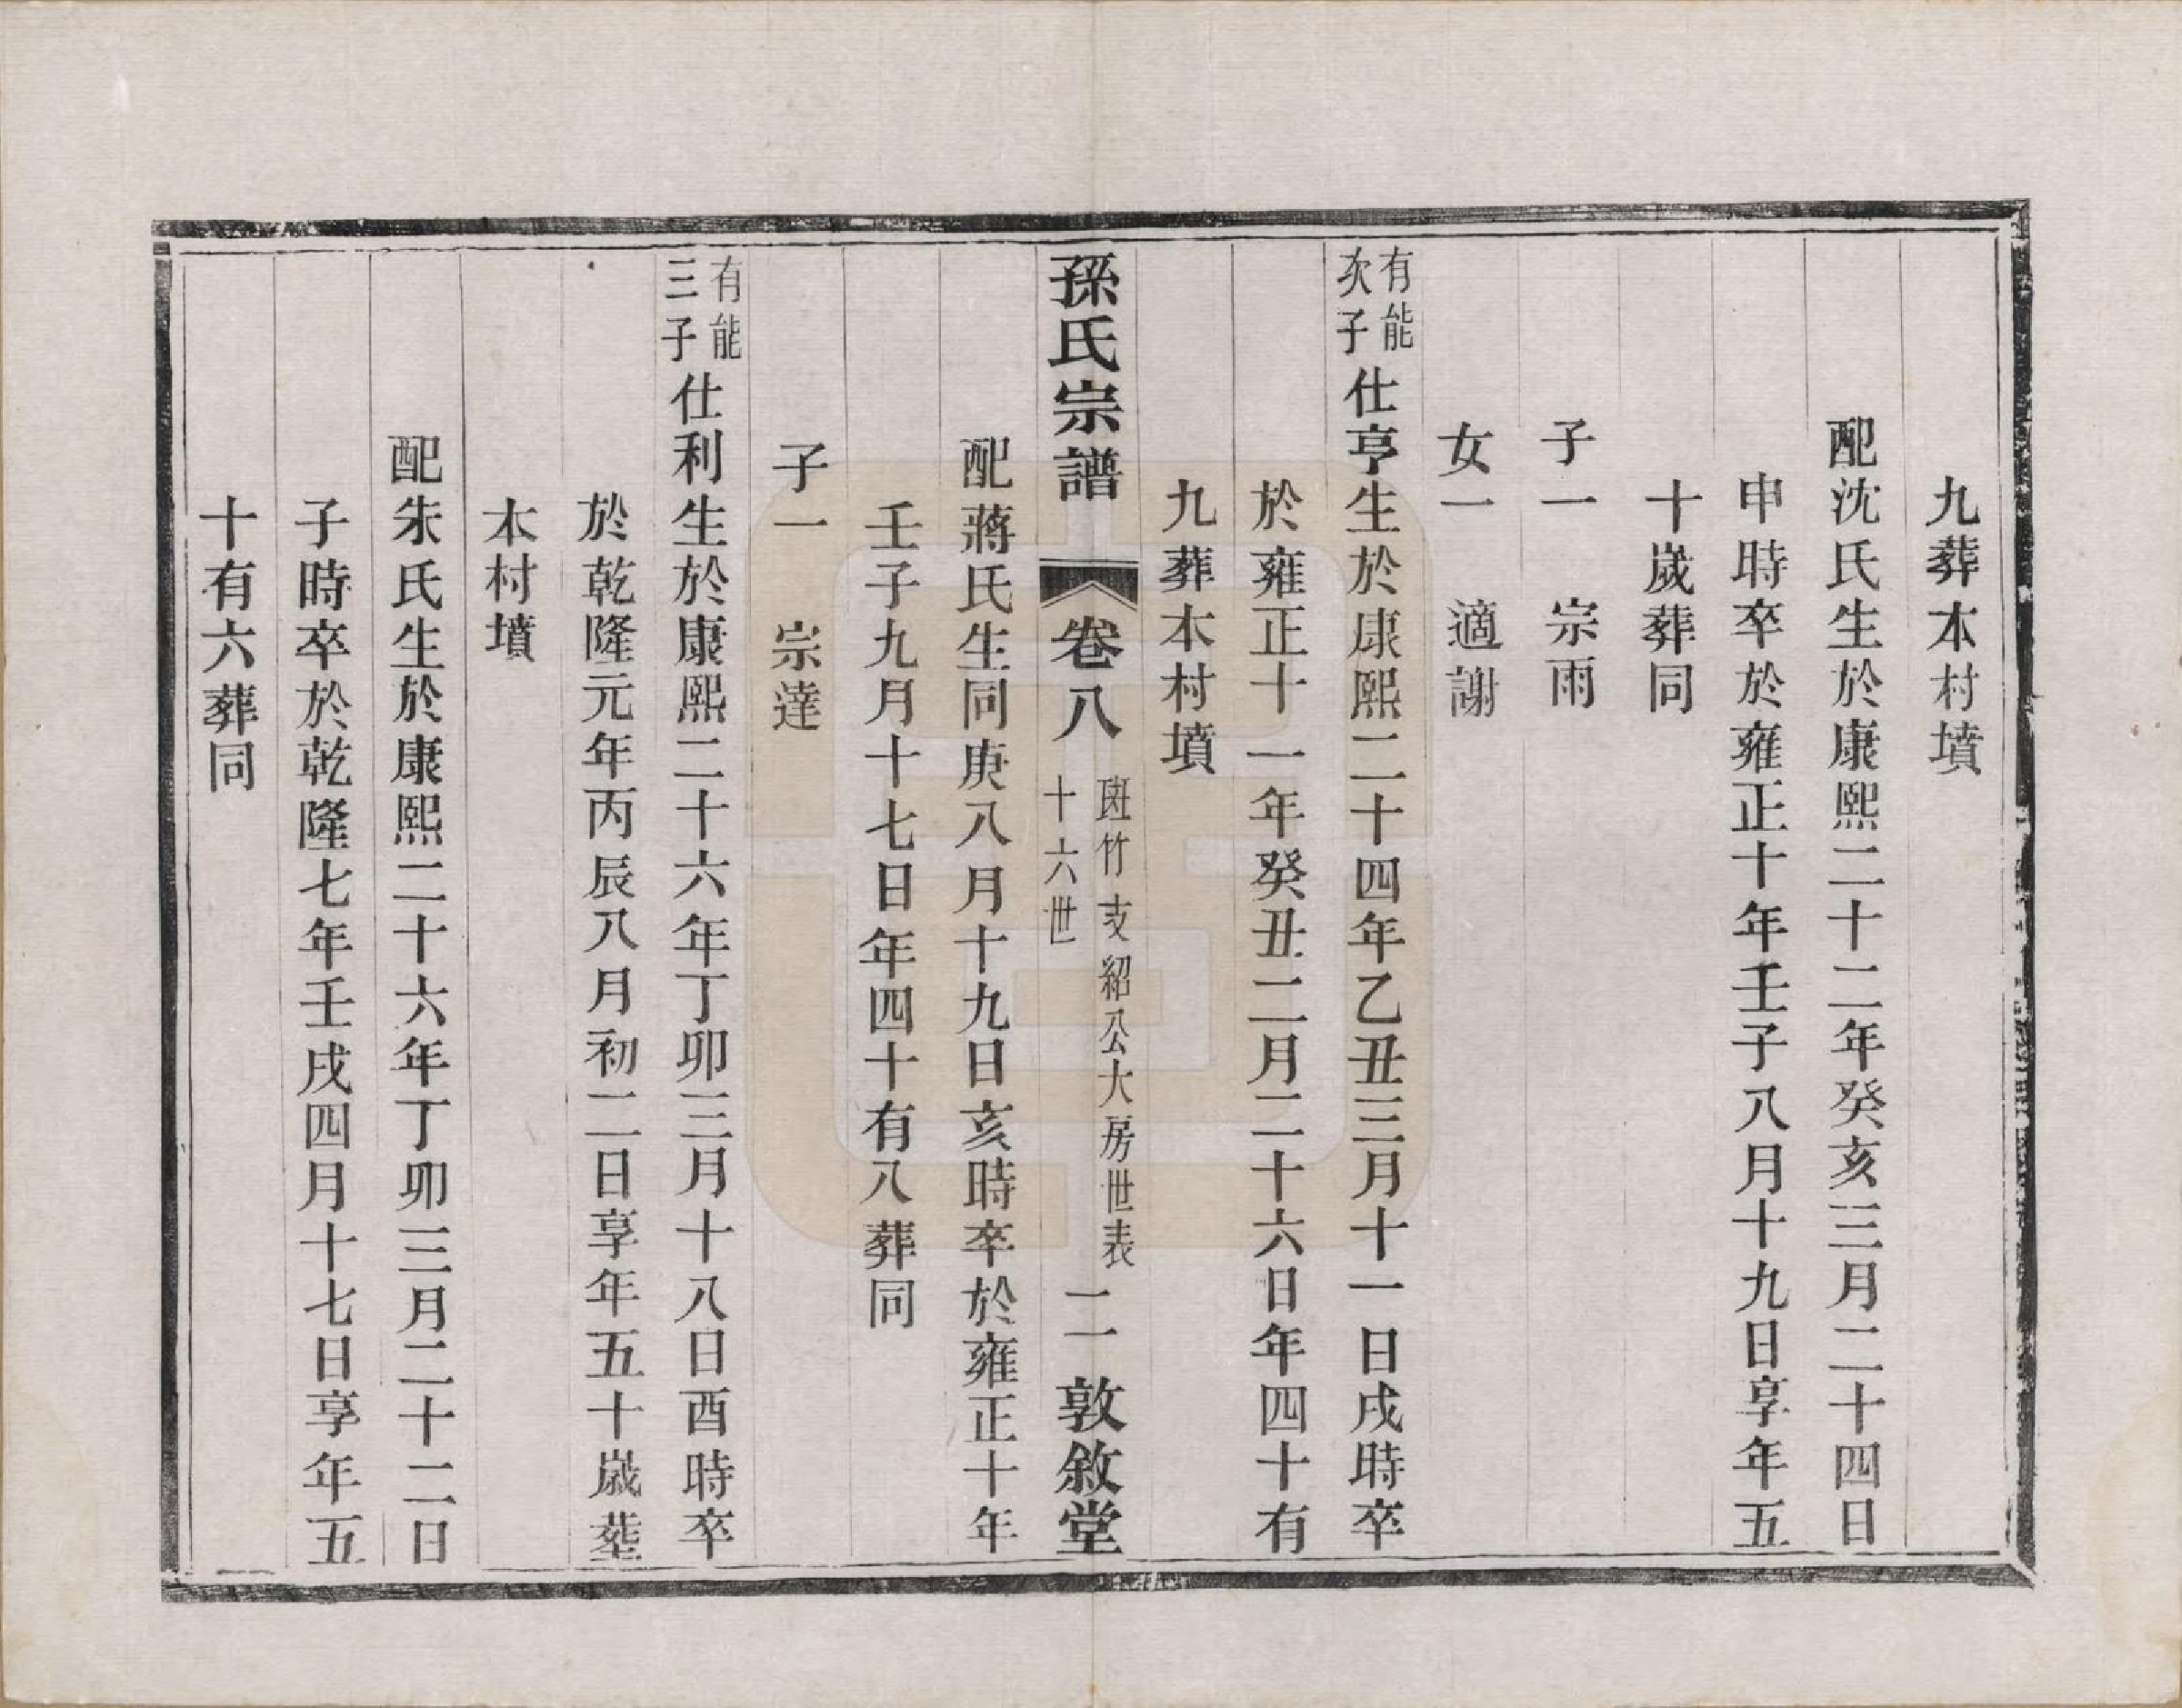 九葬本村墳
配沈氏生於康熙二十二年癸亥三月二十四日
申時卒於雍正十年壬子八月十九日享年五
十歲葬同
子一　宗雨
女一　適謝
有能
次子
仕亨生於康熙二十四年乙丑三月十一日戌時卒
於雍正十一年癸丑二月二十六日年四十有
九葬本村墳
孫氏宗譜　卷八
斑竹支紹公大房世表
十六世
二　敦敘堂
配蔣氏生同庚八月十九日亥時卒於雍正十年
壬子九月十七日年四十有八葬同
子一　宗達
有能
三子
仕利生於康熙二十六年丁卯三月十八日酉時卒
於乾隆元年丙辰八月初二日享年五十歲塟
本村墳
配朱氏生於康熙二十六年丁卯三月二十二日
子時卒於乾隆七年壬戌四月十七日享年五
十有六葬同